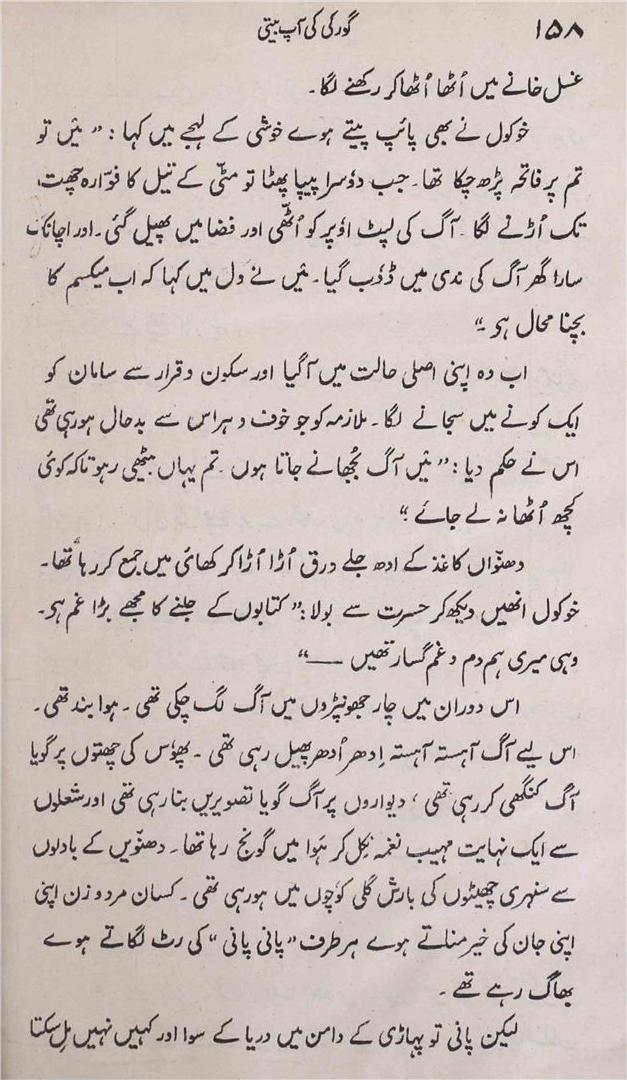 ۱۵۸ گورکی کی آپ بیتی
غسل خانے میں اُٹھا اُٹھا کر رکھنے لگا۔
خوکول نے بھی پائپ پیتے ہوے خوشی کے لہجے میں کہا: ”مَیں تو
تم پر فاتحہ پڑھ چکا تھا۔ جب دوٗسرا پیپا پھٹا تو مٹّی کے تیل کا فوّارہ چھت
تک اُڑنے لگا۔ آگ کی لپٹ اوٗپر کو اُٹھّی اور فضا میں پھیل گئی۔ اور اچانک
سارا گھر آگ کی ندی میں ڈوٗب گیا۔ مَیں نے دل میں کہا کہ اب میکسم کا
بچنا محال ہو۔“
اب وہ اپنی اصلی حالت میں آگیا اور سکون و قرار سے سامان کو
ایک کونے میں سجانے لگا۔ ملازمہ کو جو خوف و ہراس سے بدحال ہورہی تھی
اس نے حکم دیا: ”مَیں آگ بُجھانے جاتا ہوں۔ تم یہاں بیٹھی رہو تاکہ کوئی
کچھ اُٹھا نہ لے جائے“
دھنوّاں کاغذ کے ادھ جلے ورق اُڑا اُڑا کر کھائی میں جمع کررہا تھا۔
خوکول انھیں دیکھ کر حسرت سے بولا: ”کتابوں کے جلنے کا مجھے بڑا غم ہو۔
وہی میری ہم دم و غم گسار تھیں ——“
اس دوران میں چار جھونپڑوں میں آگ لگ چکی تھی۔ ہوا بند تھی۔
اس لیے آگ آہستہ آہستہ اِدھر اُدھر پھیل رہی تھی۔ پھوٗس کی چھتوں پر گویا
آگ کنگھی کررہی تھی، دیواروں پر آگ گویا تصویریں بنا رہی تھی اور شعلوں
سے ایک نہایت مہیب نغمہ نِکل کر ہَوا میں گونج رہا تھا۔ دھنوّیں کے بادلوں
سے سنہری چھینٹوں کی بارش گلی کوٗچوں میں ہورہی تھی۔ کسان مرد و زن اپنی
اپنی جان کی خیر مناتے ہوے ہر طرف ”پانی پانی“ کی رٹ لگاتے ہوے
بھاگ رہے تھے۔
لیکن پانی تو پہاڑی کے دامن میں دریا کے سوا اور کہیں نہیں مِل سکتا